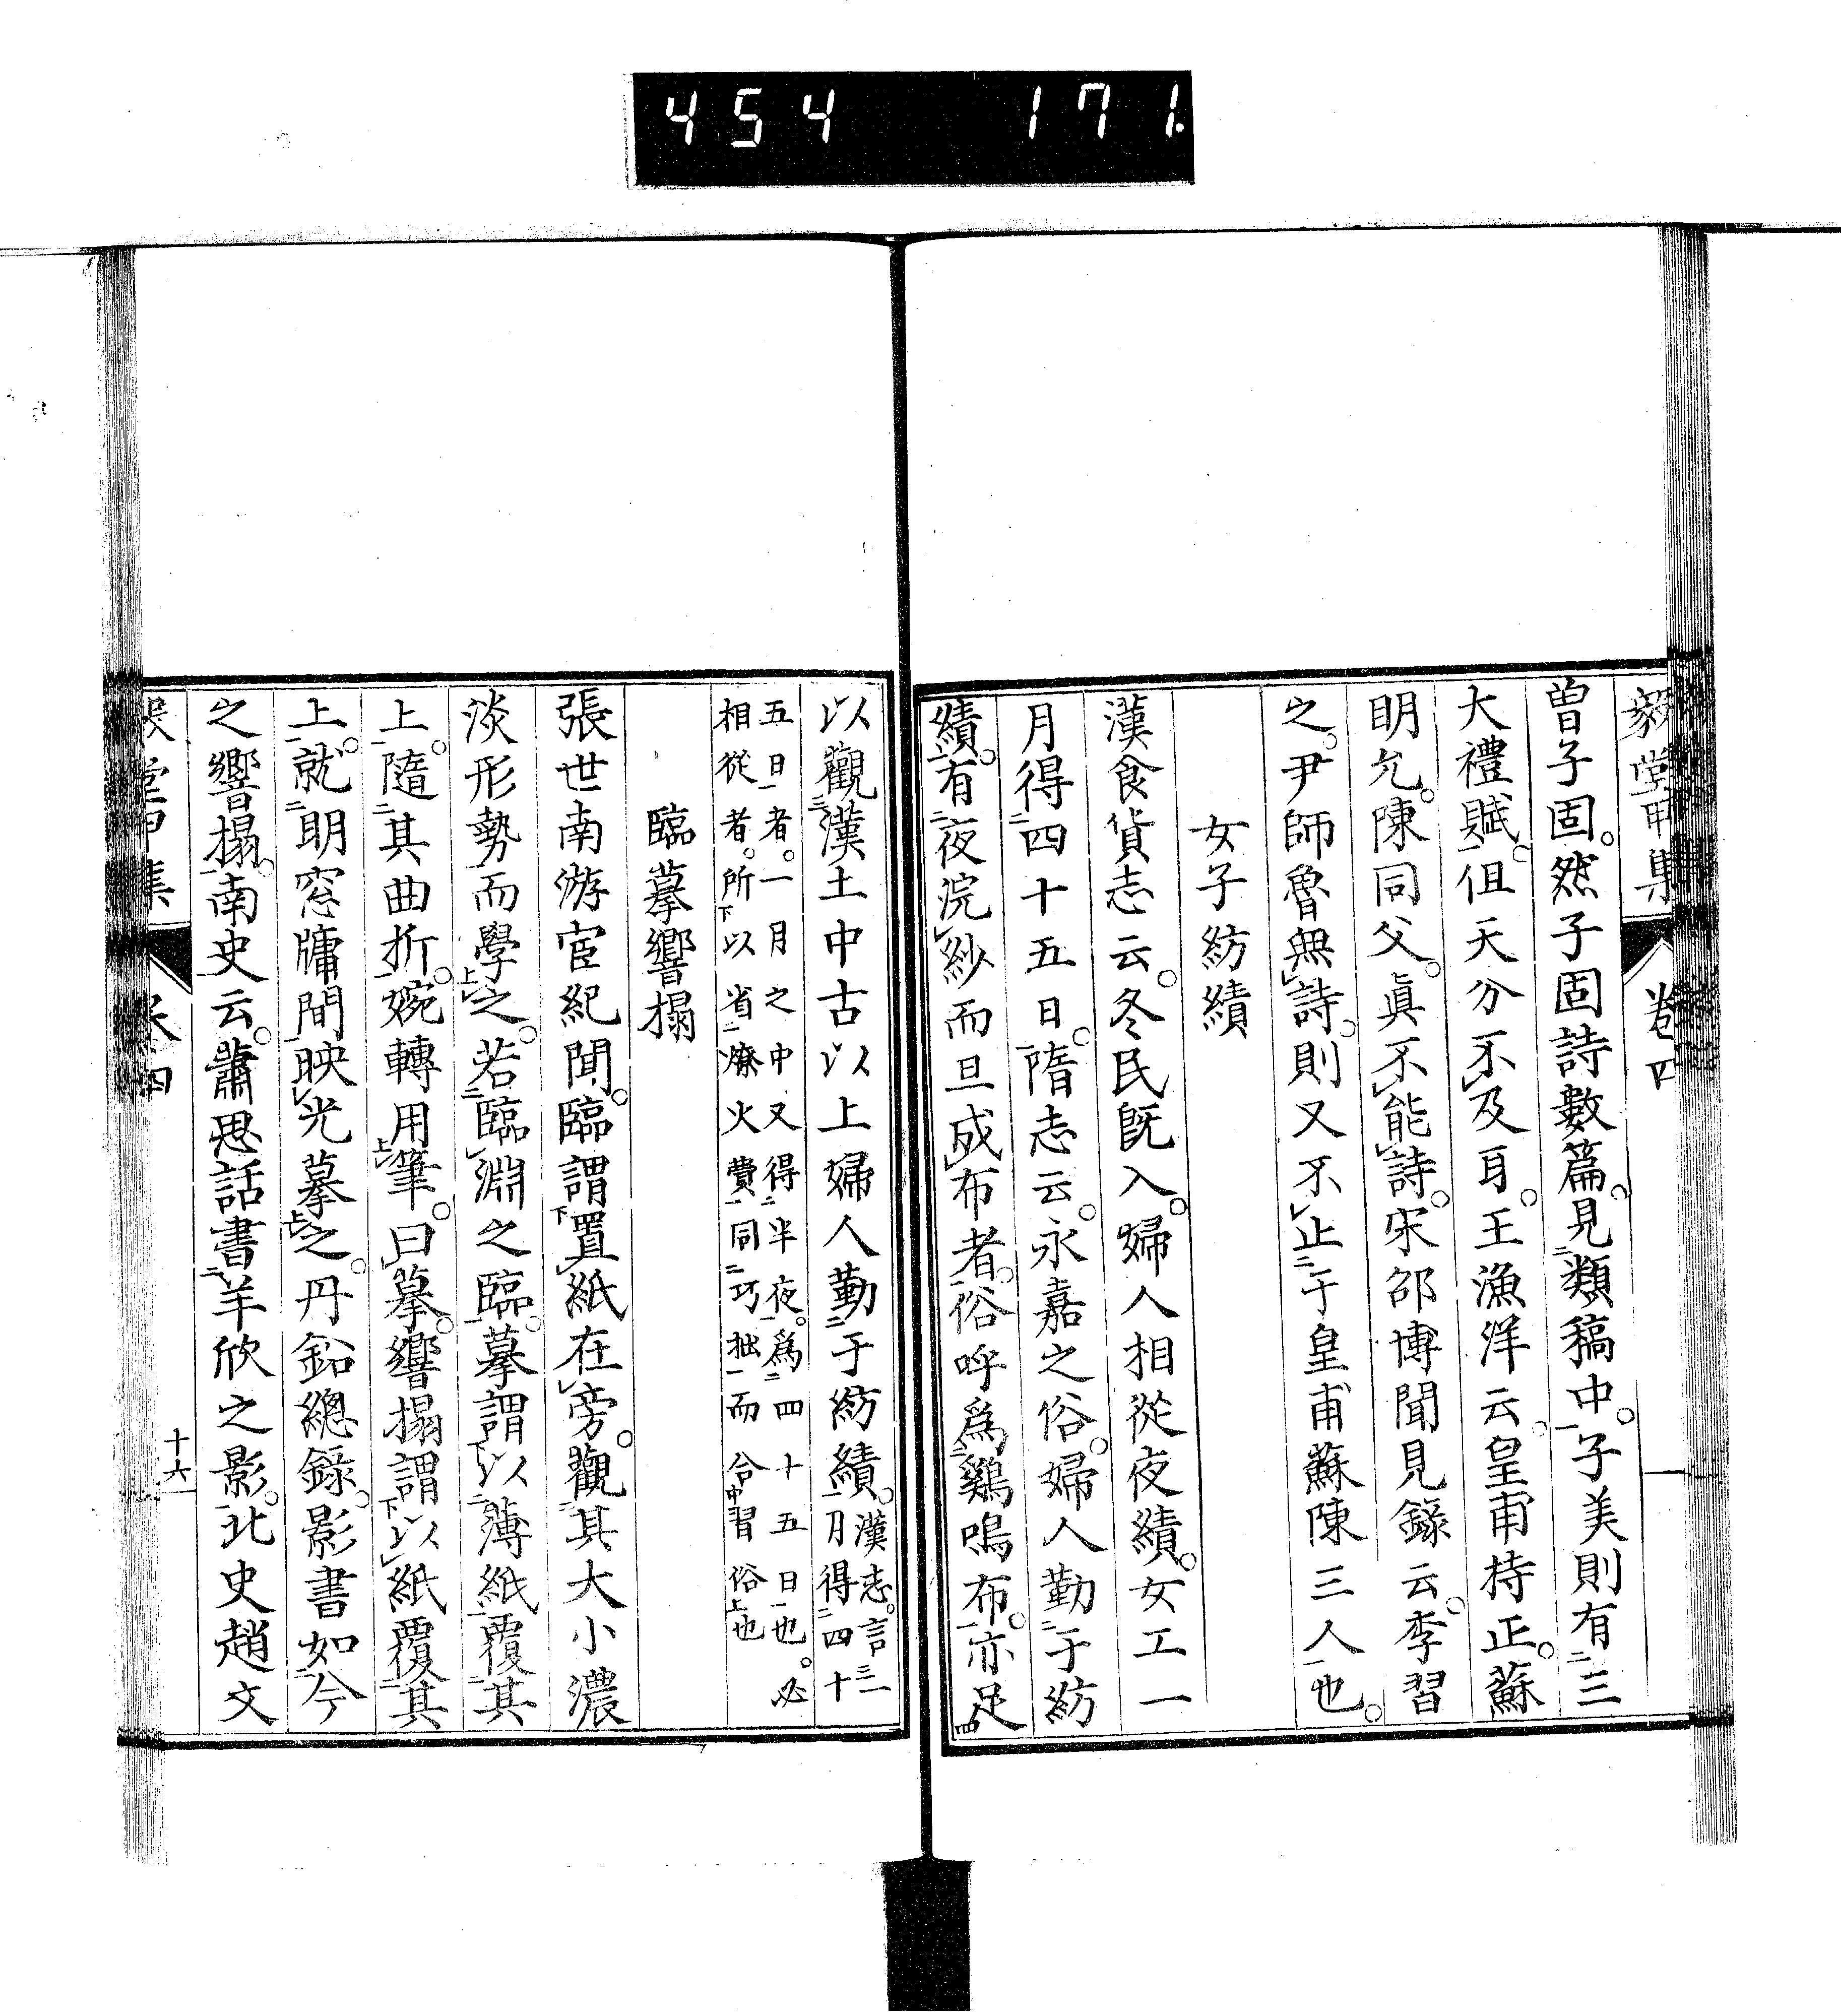 454 171
毅堂甲集 卷四
曽子固。然子固詩數篇。見類稿中。子美則有三
大禮賦。但天分不及耳。王漁洋云。皇甫持正。蘇
明允。陳同父。眞不能詩。宋邵博聞見錄云。李習
之。尹師魯無詩。則又不止于皇甫蘇陳三人也。
女子紡績
漢食貨志云。冬民既入。婦人相從夜績。女工一
月得四十五日。隋志云。永嘉之俗。婦人勤于紡
績。有夜浣紗而旦成布者。俗呼爲鷄鳴布。亦足
以觀漢土中古以上婦人勤于紡績。漢志。言一月得四十
五日者。一月之中又得半夜。爲四十五日也。必
相從者。所以省燎火費同巧拙而合習俗也
臨摹響搨
張世南游宦紀聞。臨謂置紙在旁。觀其大小濃
淡形勢而學之。若臨淵之臨。摹謂以薄紙覆其
上。隨其曲折。婉轉用筆。曰摹。響搨謂以紙覆其
上。就明窓牖間。映光摹之。丹鉛總錄。影書如今
之響搨。南史云。蕭思話書羊欣之影。北史趙文
十六